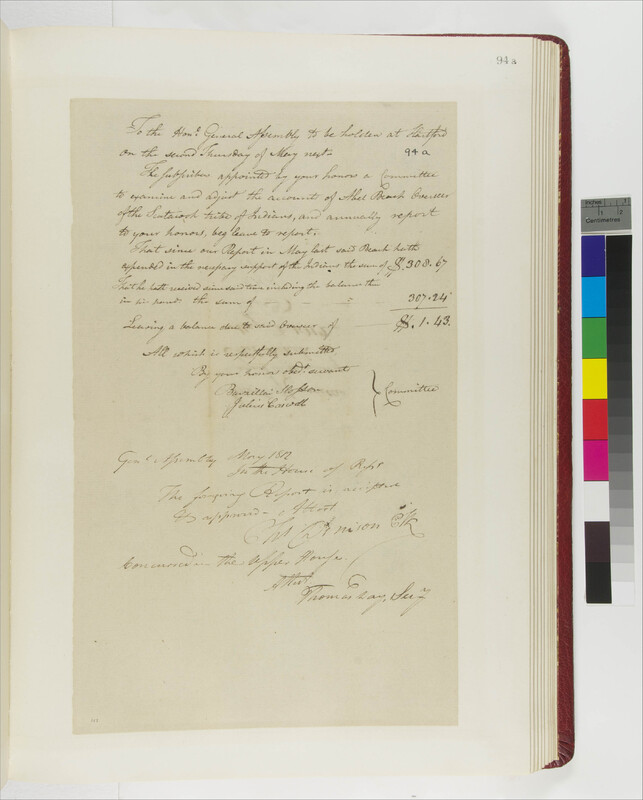 94 a
To the Hon.e General Assembly to be holden at Hartford
on the second Thursday of May next
94 a
The subscribers appointed by your honors a Committee
to examine and adjust the amount of Abel Beach Overseer
of the tribe of Indians, and annually report
to your honors, beg leave to report,
That since our Report in May last said Beach hath
expended in the necessary support of the Indians the sum of $.308.67
That he hath received since said time including the balance then
in his hand the sum of 307.24
Leaving a balance due to said Overseer of $.1.43.
All which is respectfully submitted
By your honors obdt. servants
Committee
Gen.l Assembly May 1812
In the House of Rept
The foregoing Report is accepted
& approved Attest
Denison Clk
Concurred in the Upper House.
Attest
Thomas Day, Secy
Inches
Centimetres